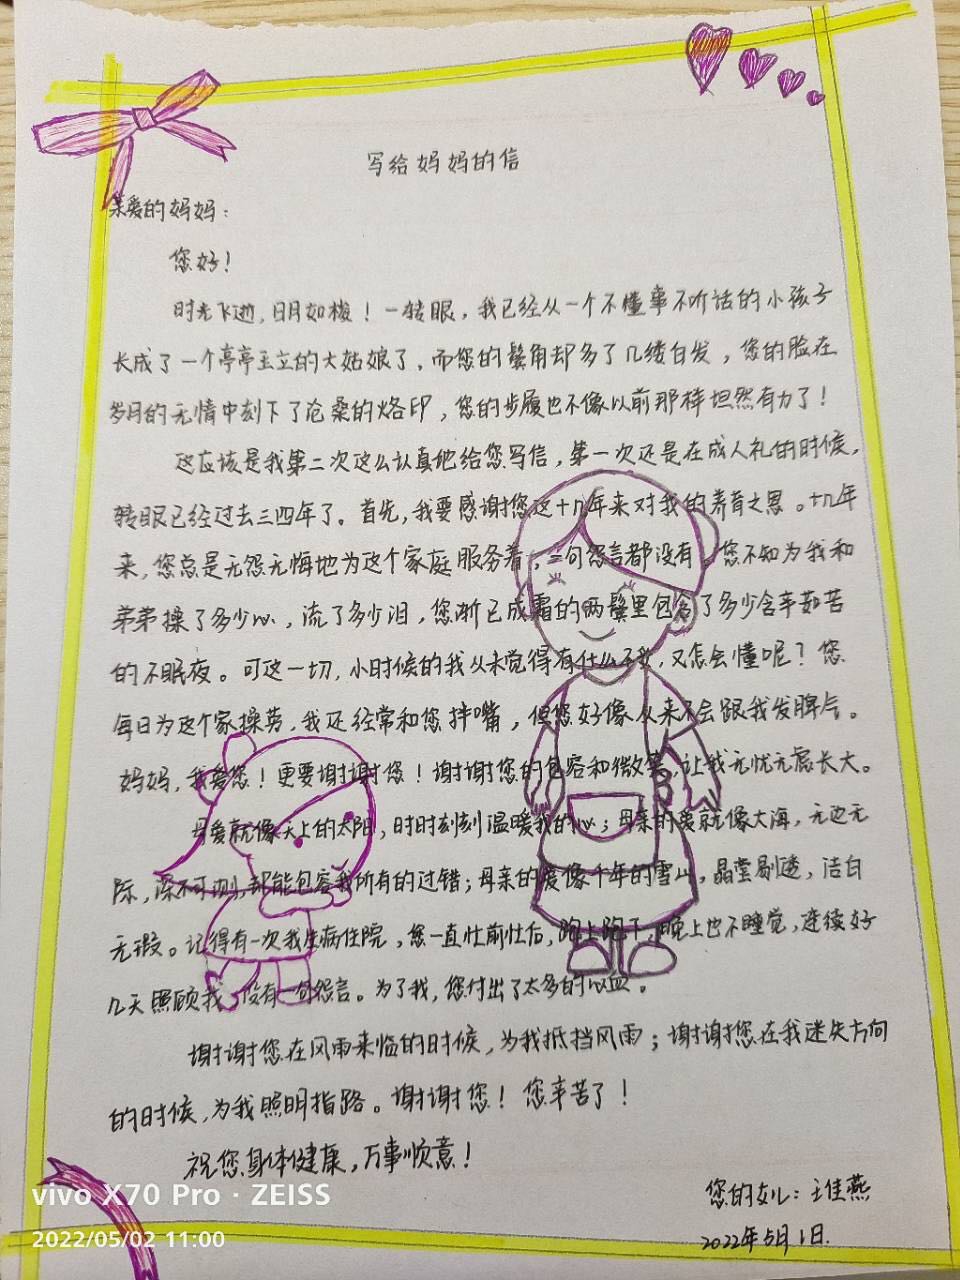 写给妈妈的信
亲爱的妈妈：
您好！
时光飞逝，日月如梭！一转眼，我已经从一个不懂事不听话的小孩子
长成了一个亭亭玉立的大姑娘了，而您的鬓角却多了几缕白发，您的脸在
岁月的无情中刻下了沧桑的烙印，您的步履也不像以前那样坦然有力了！
这应该是我第二次这么认真地给您写信，第一次还是在成人礼的时候，
转眼已经过去三四年了。首先，我要感谢您这十九年来对我的养育之恩。十九年
来，您总是无怨无悔地为这个家庭服务着，一句怨言都没有。您不知为我和
弟弟操了多少心，流了多少泪，您渐已成霜的两鬓里包含了多少含辛茹苦
的不眠夜。可这一切，小时候的我从未觉得有什么不妥，又怎会懂呢？您
每日为这个家操劳，我还经常和您拌嘴，但您好像从来不会跟我发脾气。
妈妈，我爱您！更要谢谢您！谢谢您的包容和微笑，让我无忧无虑长大。
母爱就像天上的太阳，时时刻刻温暖我的心；母亲的爱就像大海，无边无
际，深不可测，却能包容我所有的过错；母亲的爱像千年的雪山，晶莹剔透，洁白
无瑕。记得有一次我生病住院，您一直忙前忙后，跑上跑下，晚上也不睡觉，连续好
几天照顾我，没有一句怨言。为了我，您付出了太多的心血。
谢谢您在风雨来临的时候，为我抵挡风雨；谢谢您在我迷失方向
的时候，为我照明指路。谢谢您！您辛苦了！
祝您身体健康，万事顺意！
您的女儿：王佳燕
2022年5月1日
vivo X70 Pro · ZEISS
2022/05/02 11:00